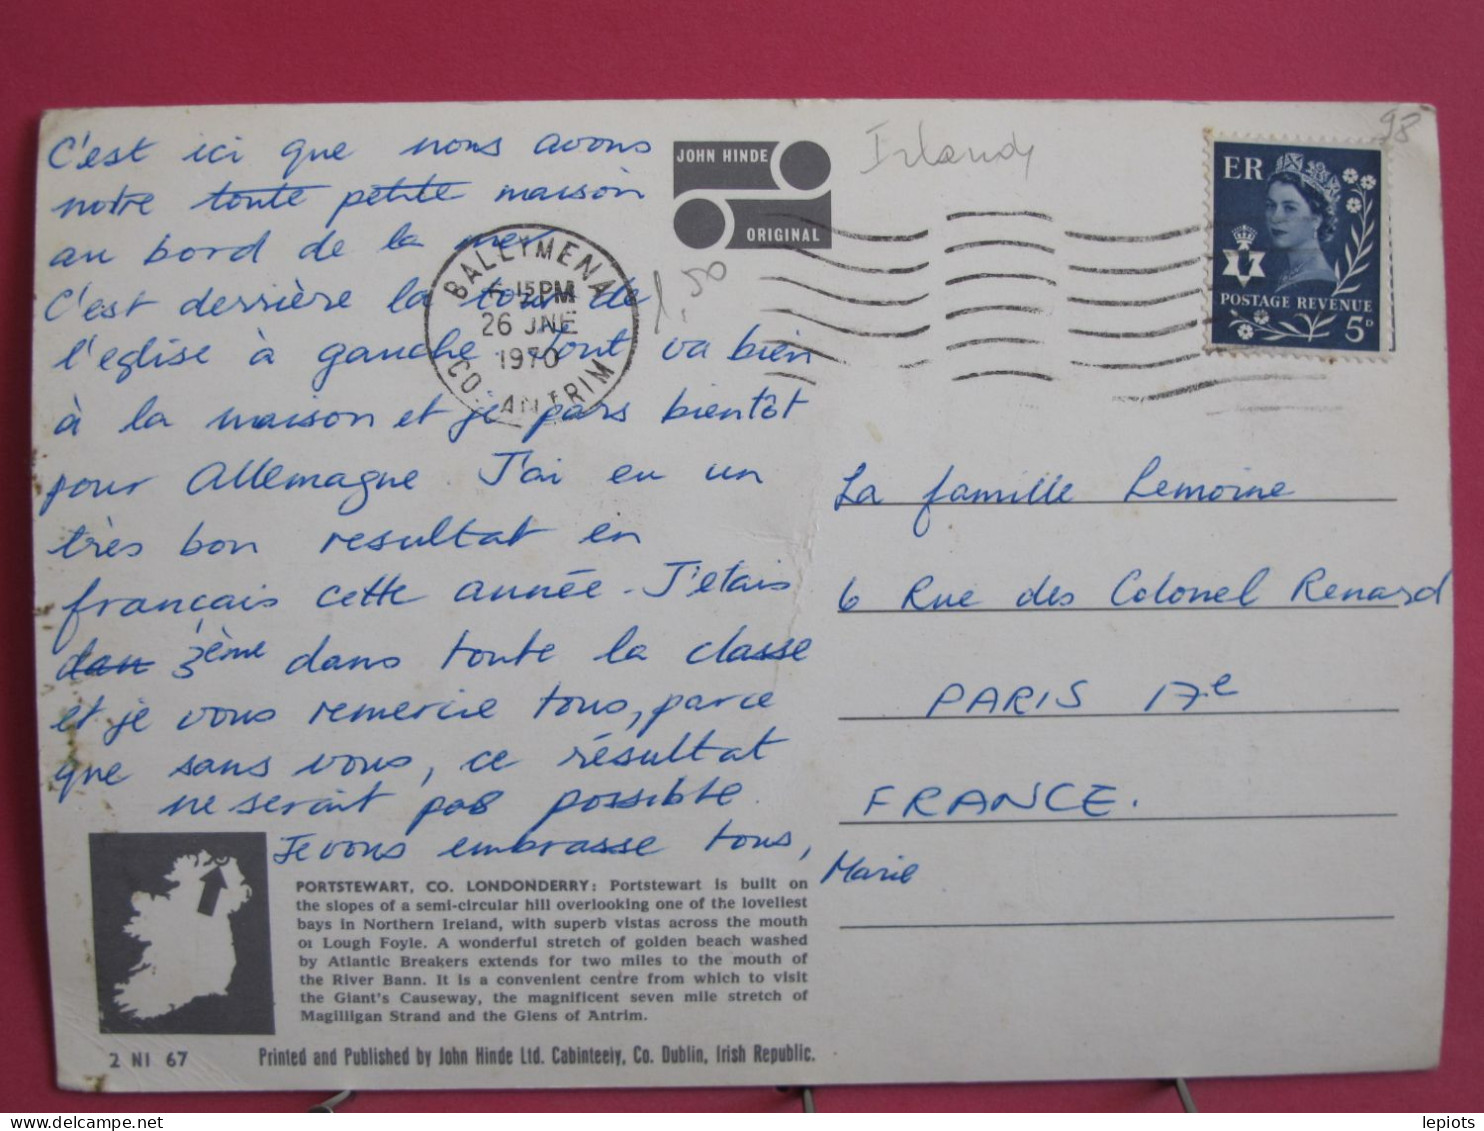 C'est ici que nous avons
notre toute petite maison
au bord de la mer
C'est derrière la tour de
l'eglise à gauche. Tout va bien
à la maison et je pars bientôt
pour Allemagne. J'ai eu un
très bon resultat en
français cette année. J'etais
dan 3ème dans toute la classe
et je vous remercie tous, parce
que sans vous, ce résultat
ne serait pas possible.
Je vous embrasse tous,
Marie
JOHN HINDE
ORIGINAL
Irlande
98
1,50
BALLYMENA
6-15PM
26 JNE
1970
CO. ANTRIM
ER
POSTAGE REVENUE
5D
La famille Lemoine
6 Rue des Colonel Renard
PARIS 17e
FRANCE.
PORTSTEWART, CO. LONDONDERRY: Portstewart is built on
the slopes of a semi-circular hill overlooking one of the loveliest
bays in Northern Ireland, with superb vistas across the mouth
of Lough Foyle. A wonderful stretch of golden beach washed
by Atlantic Breakers extends for two miles to the mouth of
the River Bann. It is a convenient centre from which to visit
the Giant's Causeway, the magnificent seven mile stretch of
Magilligan Strand and the Glens of Antrim.
2 NI 67
Printed and Published by John Hinde Ltd. Cabinteely, Co. Dublin, Irish Republic.
lepiots